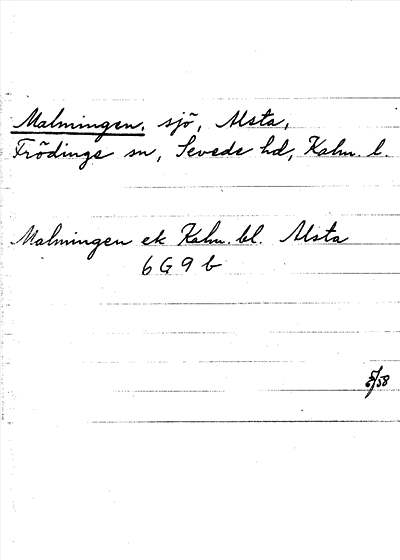 Malmingen, sjö, Alsta,
Frödinge sn, Sevede hd, Kalm. l.
Malmingen ek Kalm. bl. Alsta
6 G 9 b